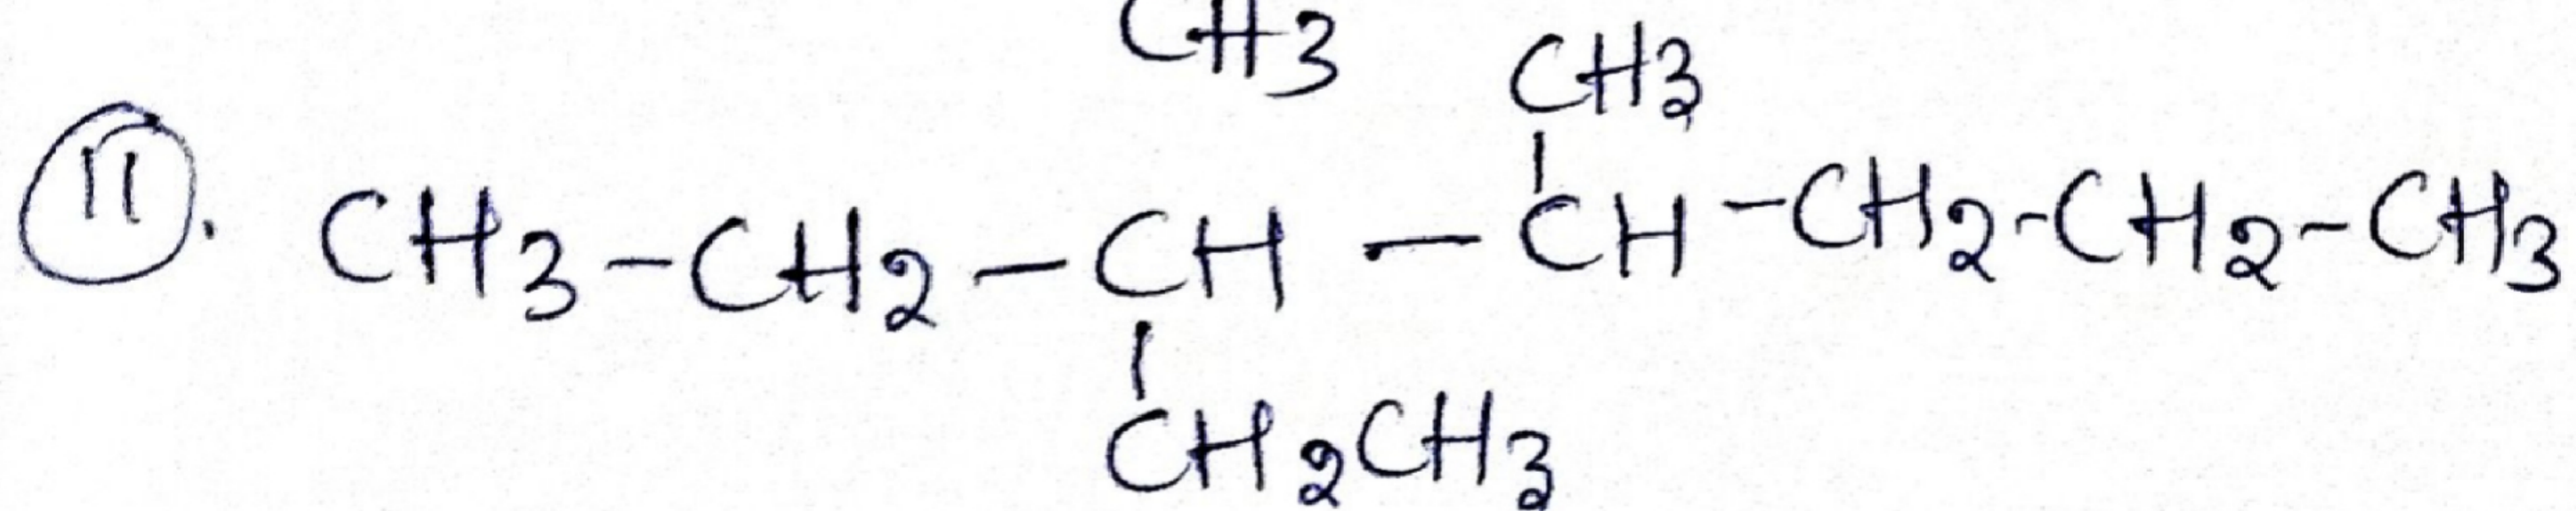 CH3
CH3
11. CH3-CH2-CH-CH-CH2-CH2-CH3
CH2CH3